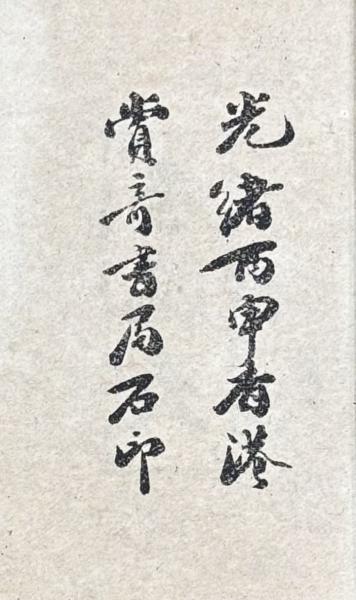 光緒丙申香港
賞奇書局石印